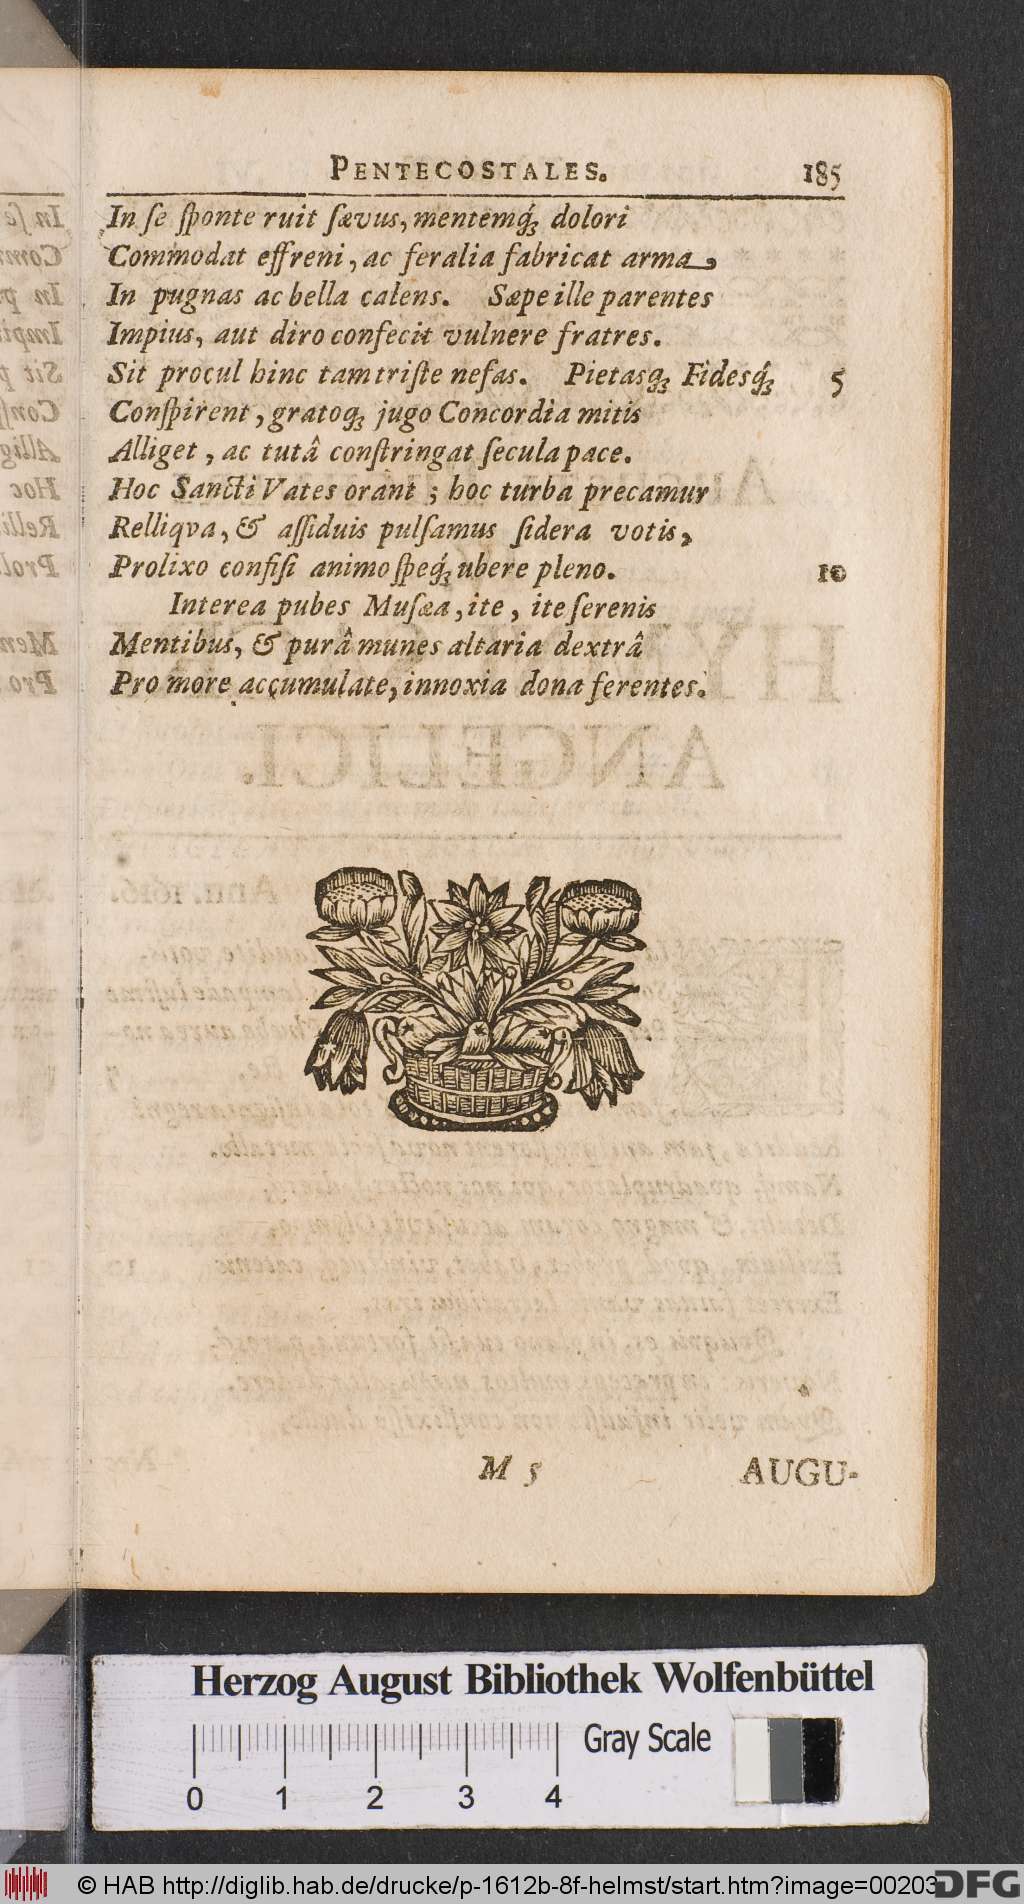 PENTECOSTALES. 185
In ſe ſponte ruit ſævus, mentemq́; dolori
Commodat effreni, ac feralia fabricat arma,
In pugnas ac bella calens. Sæpe ille parentes
Impius, aut diro confecit vulnere fratres.
Sit procul hinc tam triſte nefas. Pietasq; Fidesq́; 5
Conſpirent, gratoq; jugo Concordia mitis
Alliget, ac tutâ conſtringat ſecula pace.
Hoc Sancti Vates orant; hoc turba precamur
Relliqva, & aſſiduis pulſamus ſidera votis,
Prolixo confiſi animo ſpeq́; ubere pleno. 10
Interea pubes Muſæa, ite, ite ſerenis
Mentibus, & purâ munes altaria dextrâ
Pro more accumulate, innoxia dona ferentes.
M 5 AUGU-
Herzog August Bibliothek Wolfenbüttel
Gray Scale
0 1 2 3 4
© HAB http://diglib.hab.de/drucke/p-1612b-8f-helmst/start.htm?image=00203
DFG